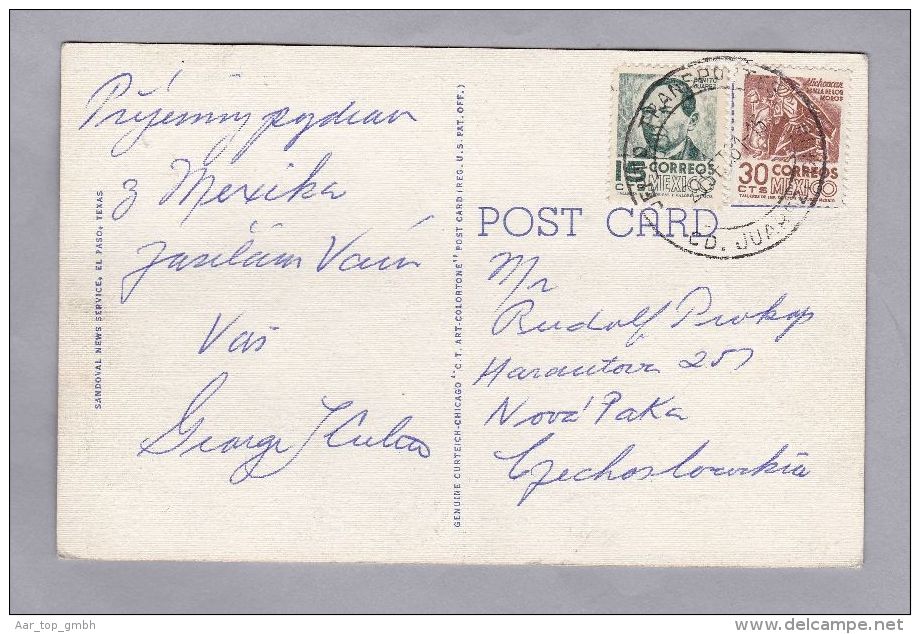 Příjemný pozdrav
z Mexika
zasílám Vám
Váš
George
SANDOVAL NEWS SERVICE, EL PASO, TEXAS
GENUINE CURTEICH-CHICAGO "C.T. ART-COLORTONE" POST CARD (REG. U.S. PAT. OFF.)
POST CARD
BENITO JUAREZ
5
CORREOS
MEXICO
Michoacan
DANZA DE LOS MOROS
30 CORREOS
CTS MEXICO
CD. JUAREZ
Mr
Rudolf Prokop
Harantova 257
Nová Paka
Czechoslovakia
Aar_top_gmbh
www.delcampe.net